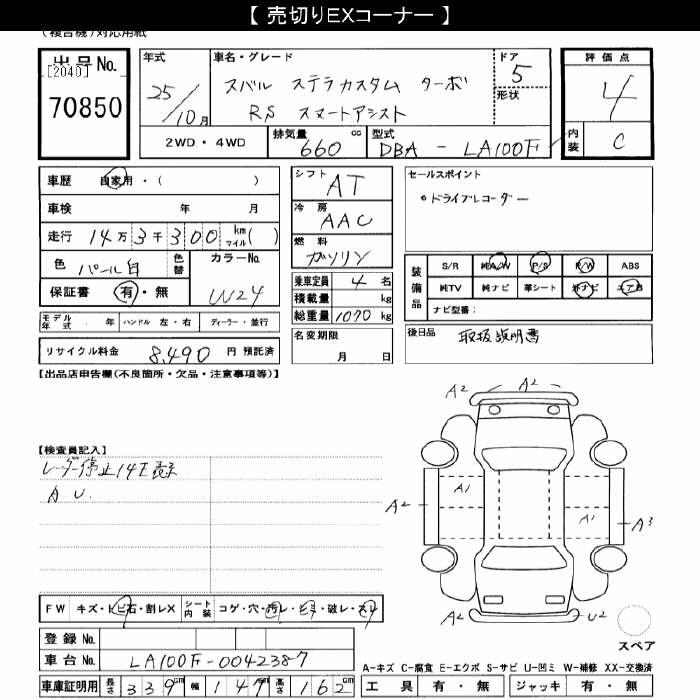 【 売切りEXコーナー 】
(複合機)対応用紙
出品No.
[2040]
70850
年式
25/10月
車名・グレード
スバル ステラカスタム ターボ
RS スマートアシスト
ドア
5
形状
2WD・4WD
排気量
660 cc
型式
DBA - LA100F
評価点
4
内装
C
車歴 自家用・( )
車検 年 月
走行 14万3千300 km マイル( )
色 パール白
色替
カラーNo.
W24
保証書 有・無
モデル年式 年 ハンドル 左・右 ディーラー・並行
リサイクル料金 8,490 円 預託済
シフト
AT
冷房
AAC
燃料
ガソリン
乗車定員 4 名
積載量 kg
総重量 1070 kg
名変期限
月 日
セールスポイント
。ドライブレコーダー
装備品
S/R 純A/W P/S P/W ABS
純TV 純ナビ 革シート 外ナビ エアB
ナビ型番:
後日品
取扱説明書
【出品店申告欄(不良箇所・欠品・注意事項等)】
【検査員記入】
A U.
A2
A2
A2
A1
A1
A3
A2
U2
スペア
FW キズ・トビ石・割レX
シート内装 コゲ・穴・汚レ・ヒヒ・破レ・スレ
登録No.
車台No. LA100F-0042387
車庫証明用 長さ 339cm 幅 147cm 高さ 162cm
A-キズ C-腐食 E-エクボ S-サビ U-凹ミ W-補修 XX-交換済
工具 有・無 ジャッキ 有・無